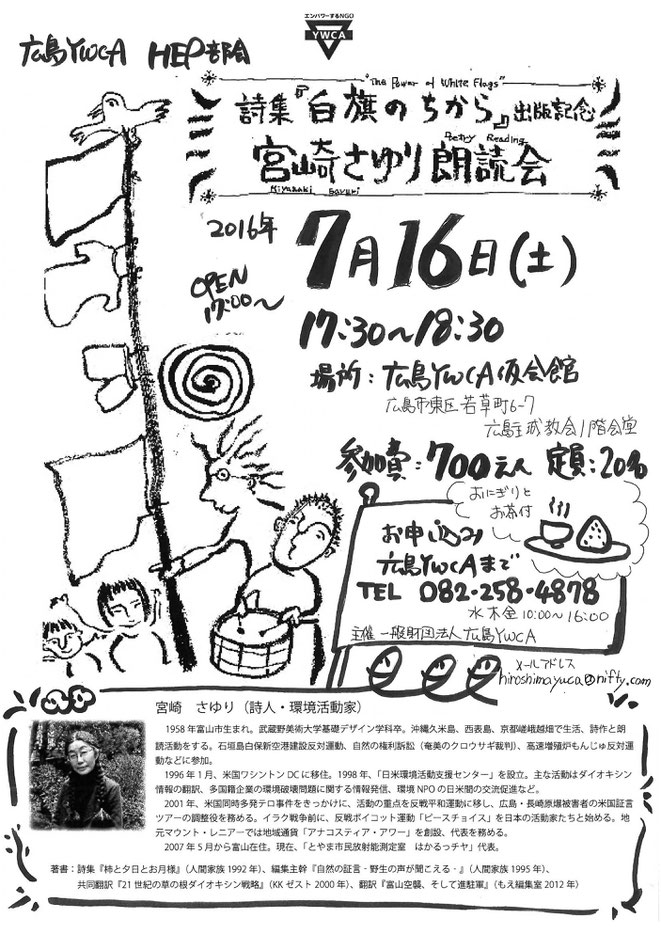 エンパワーするNGO
YWCA
広島YWCA HEP部会
"The Power of White Flags"
詩集『白旗のちから』出版記念
Poetry Reading
宮崎さゆり朗読会
Miyazaki Sayuri
2016年
7月16日(土)
OPEN
17:00〜
17:30〜18:30
場所:広島YWCA仮会館
広島市東区若草町6-7
広島主城教会1階会堂
参加費:700えん 定員:20名
おにぎりと
お茶付
お申し込み
広島YWCAまで
TEL 082-258-4878
水木金10:00〜16:00
主催 一般財団法人広島YWCA
メールアドレス
hiroshimaywca@nifty.com
宮崎 さゆり(詩人・環境活動家)
1958年富山市生まれ。武蔵野美術大学基礎デザイン学科卒。沖縄久米島、西表島、京都嵯峨越畑で生活、詩作と朗
読活動をする。石垣島白保新空港建設反対運動、自然の権利訴訟(奄美のクロウサギ裁判)、高速増殖炉もんじゅ反対運
動などに参加。
1996年1月、米国ワシントンDCに移住。1998年、「日米環境活動支援センター」を設立。主な活動はダイオキシン
情報の翻訳、多国籍企業の環境破壊問題に関する情報発信、環境NPOの日米間の交流促進など。
2001年、米国同時多発テロ事件をきっかけに、活動の重点を反戦平和運動に移し、広島・長崎原爆被害者の米国証言
ツアーの調整役を務める。イラク戦争前に、反戦ボイコット運動「ピースチョイス」を日本の活動家たちと始める。地
元マウント・レニアーでは地域通貨「アナコスティア・アワー」を創設、代表を務める。
2007年5月から富山在住。現在、「とやま市民放射能測定室 はかるっチャ」代表。
著書:詩集『柿と夕日とお月様』(人間家族1992年)、編集主幹『自然の証言‐野生の声が聞こえる‐』(人間家族1995年)、
共同翻訳『21世紀の草の根ダイオキシン戦略』(KKゼスト2000年)、翻訳『富山空襲、そして進駐軍』(もえ編集室2012年)